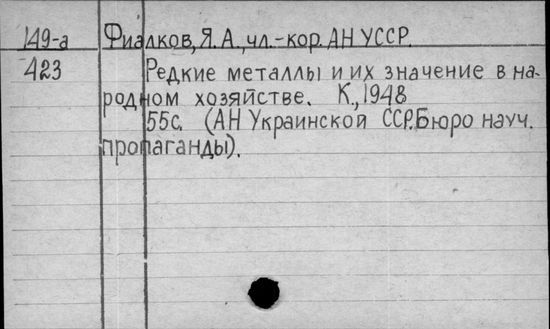 149-а Фиалков, Я.А., чл.-кор. АН УССР.
423 Редкие металлы и их значение в на-
родном хозяйстве. К., 1948
55с. (АН Украинской ССР. Бюро науч.
пропаганды).